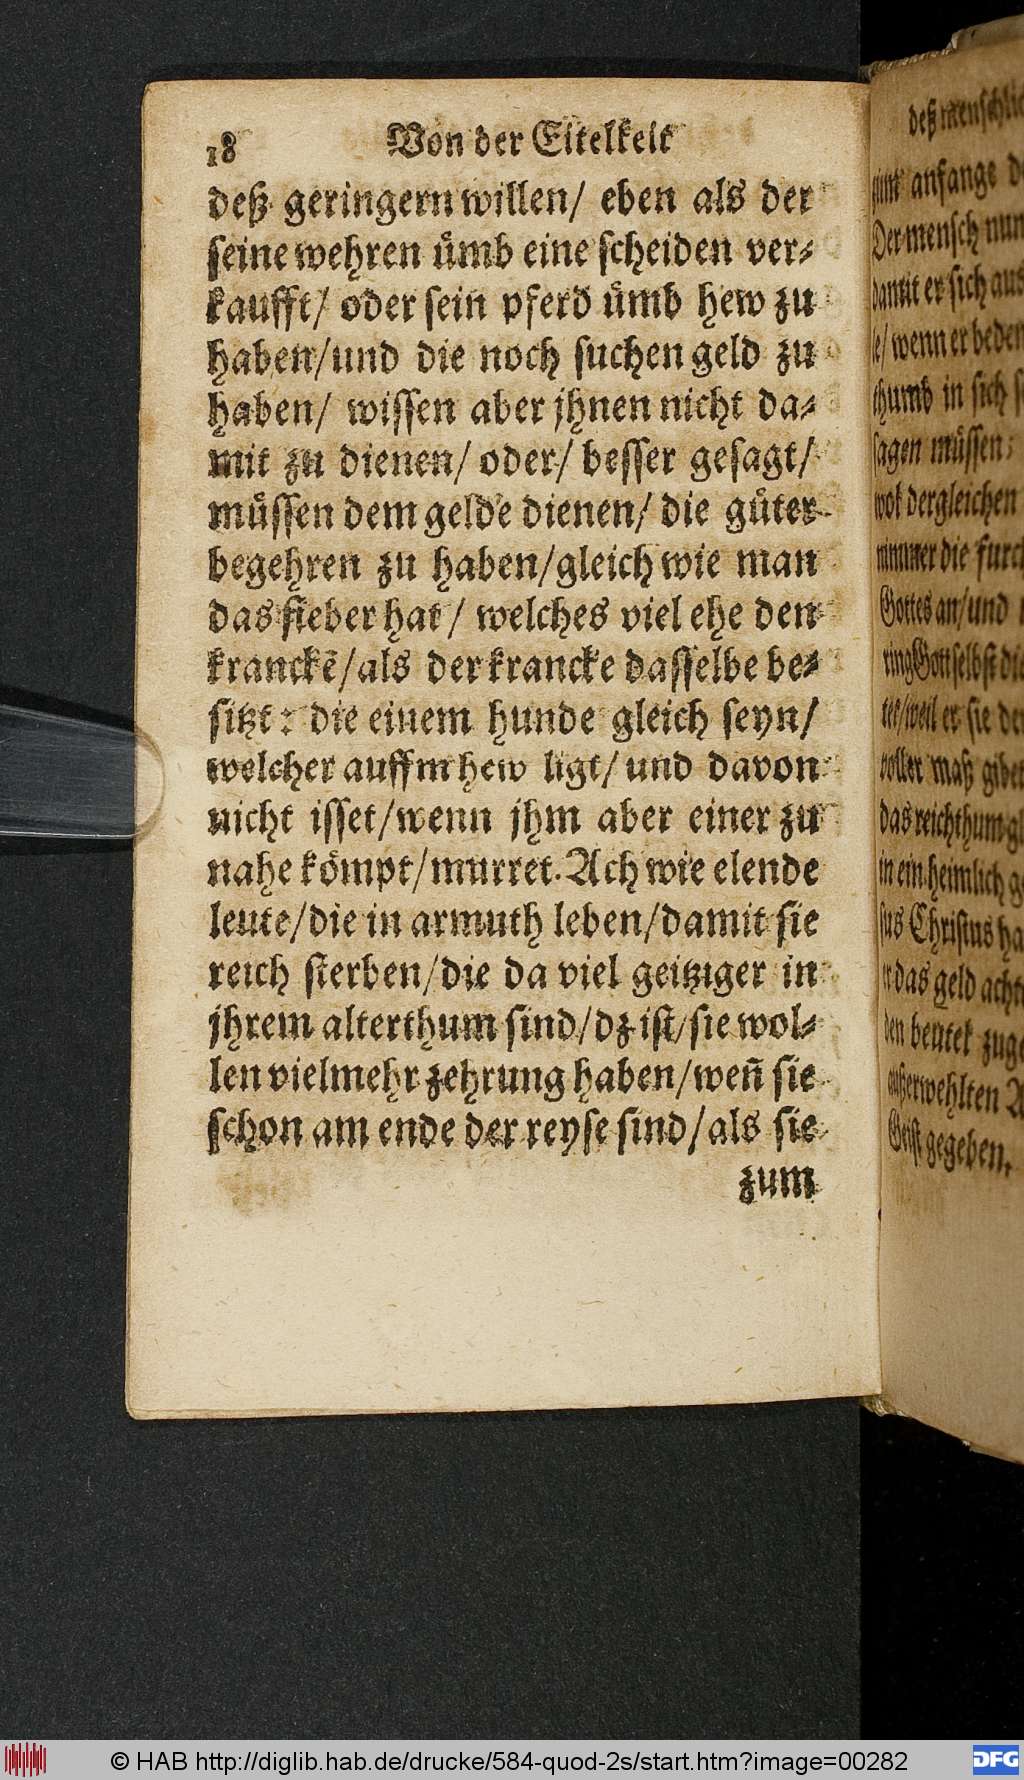 18 Von der Eitelkeit
deß geringern willen/ eben als der
seine wehren ümb eine scheiden ver-
kaufft/ oder sein pferd ümb hew zu
haben/und die noch suchen geld zu
haben/ wissen aber jhnen nicht da-
mit zu dienen/ oder/ besser gesagt/
müssen dem gelde dienen/ die güter
begehren zu haben/gleich wie man
das fieber hat/ welches viel ehe den
kranckẽ/als der krancke dasselbe be-
sitzt: die einem hunde gleich seyn/
welcher auffm hew ligt/ und davon
nicht isset/wenn jhm aber einer zu
nahe kömpt/murret. Ach wie elende
leute/die in armuth leben/damit sie
reich sterben/die da viel geitziger in
jhrem alterthum sind/dz ist/sie wol-
len vielmehr zehrung haben/weñ sie
schon am ende der reyse sind/als sie
zum
deß
zum anfange
Der mensch nun
damit er sich
wenn er
in sich
sagen müssen;
wol dergleichen
nimmer die
Gottes an/und
Gott selbst die
weil er sie
voller maß
das reichthum
in ein heimlich
Christus
das geld
den beutel
Geist gegeben.
© HAB http://diglib.hab.de/drucke/584-quod-2s/start.htm?image=00282
DFG